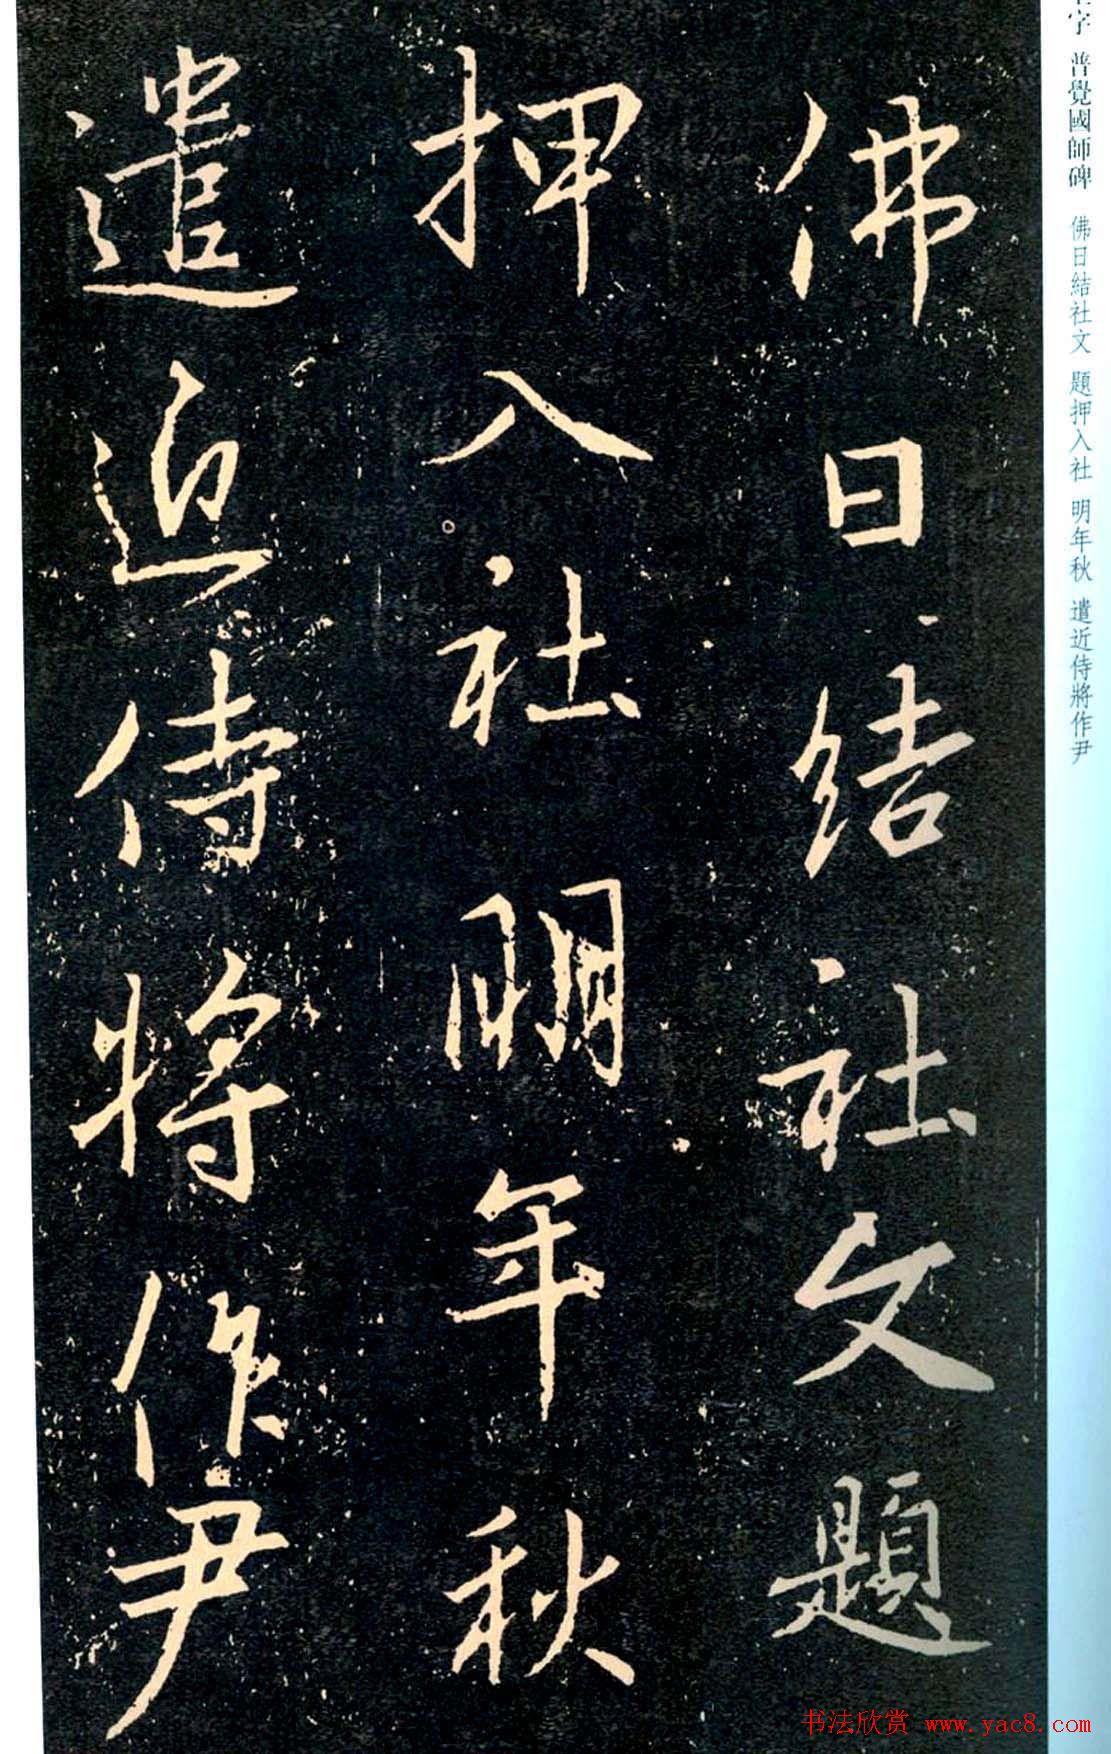 佛日結社文題
押入社明年秋
遣近侍將作尹
字 普覺國師碑 佛日結社文 題押入社 明年秋 遣近侍將作尹
书法欣赏 www.yac8.com